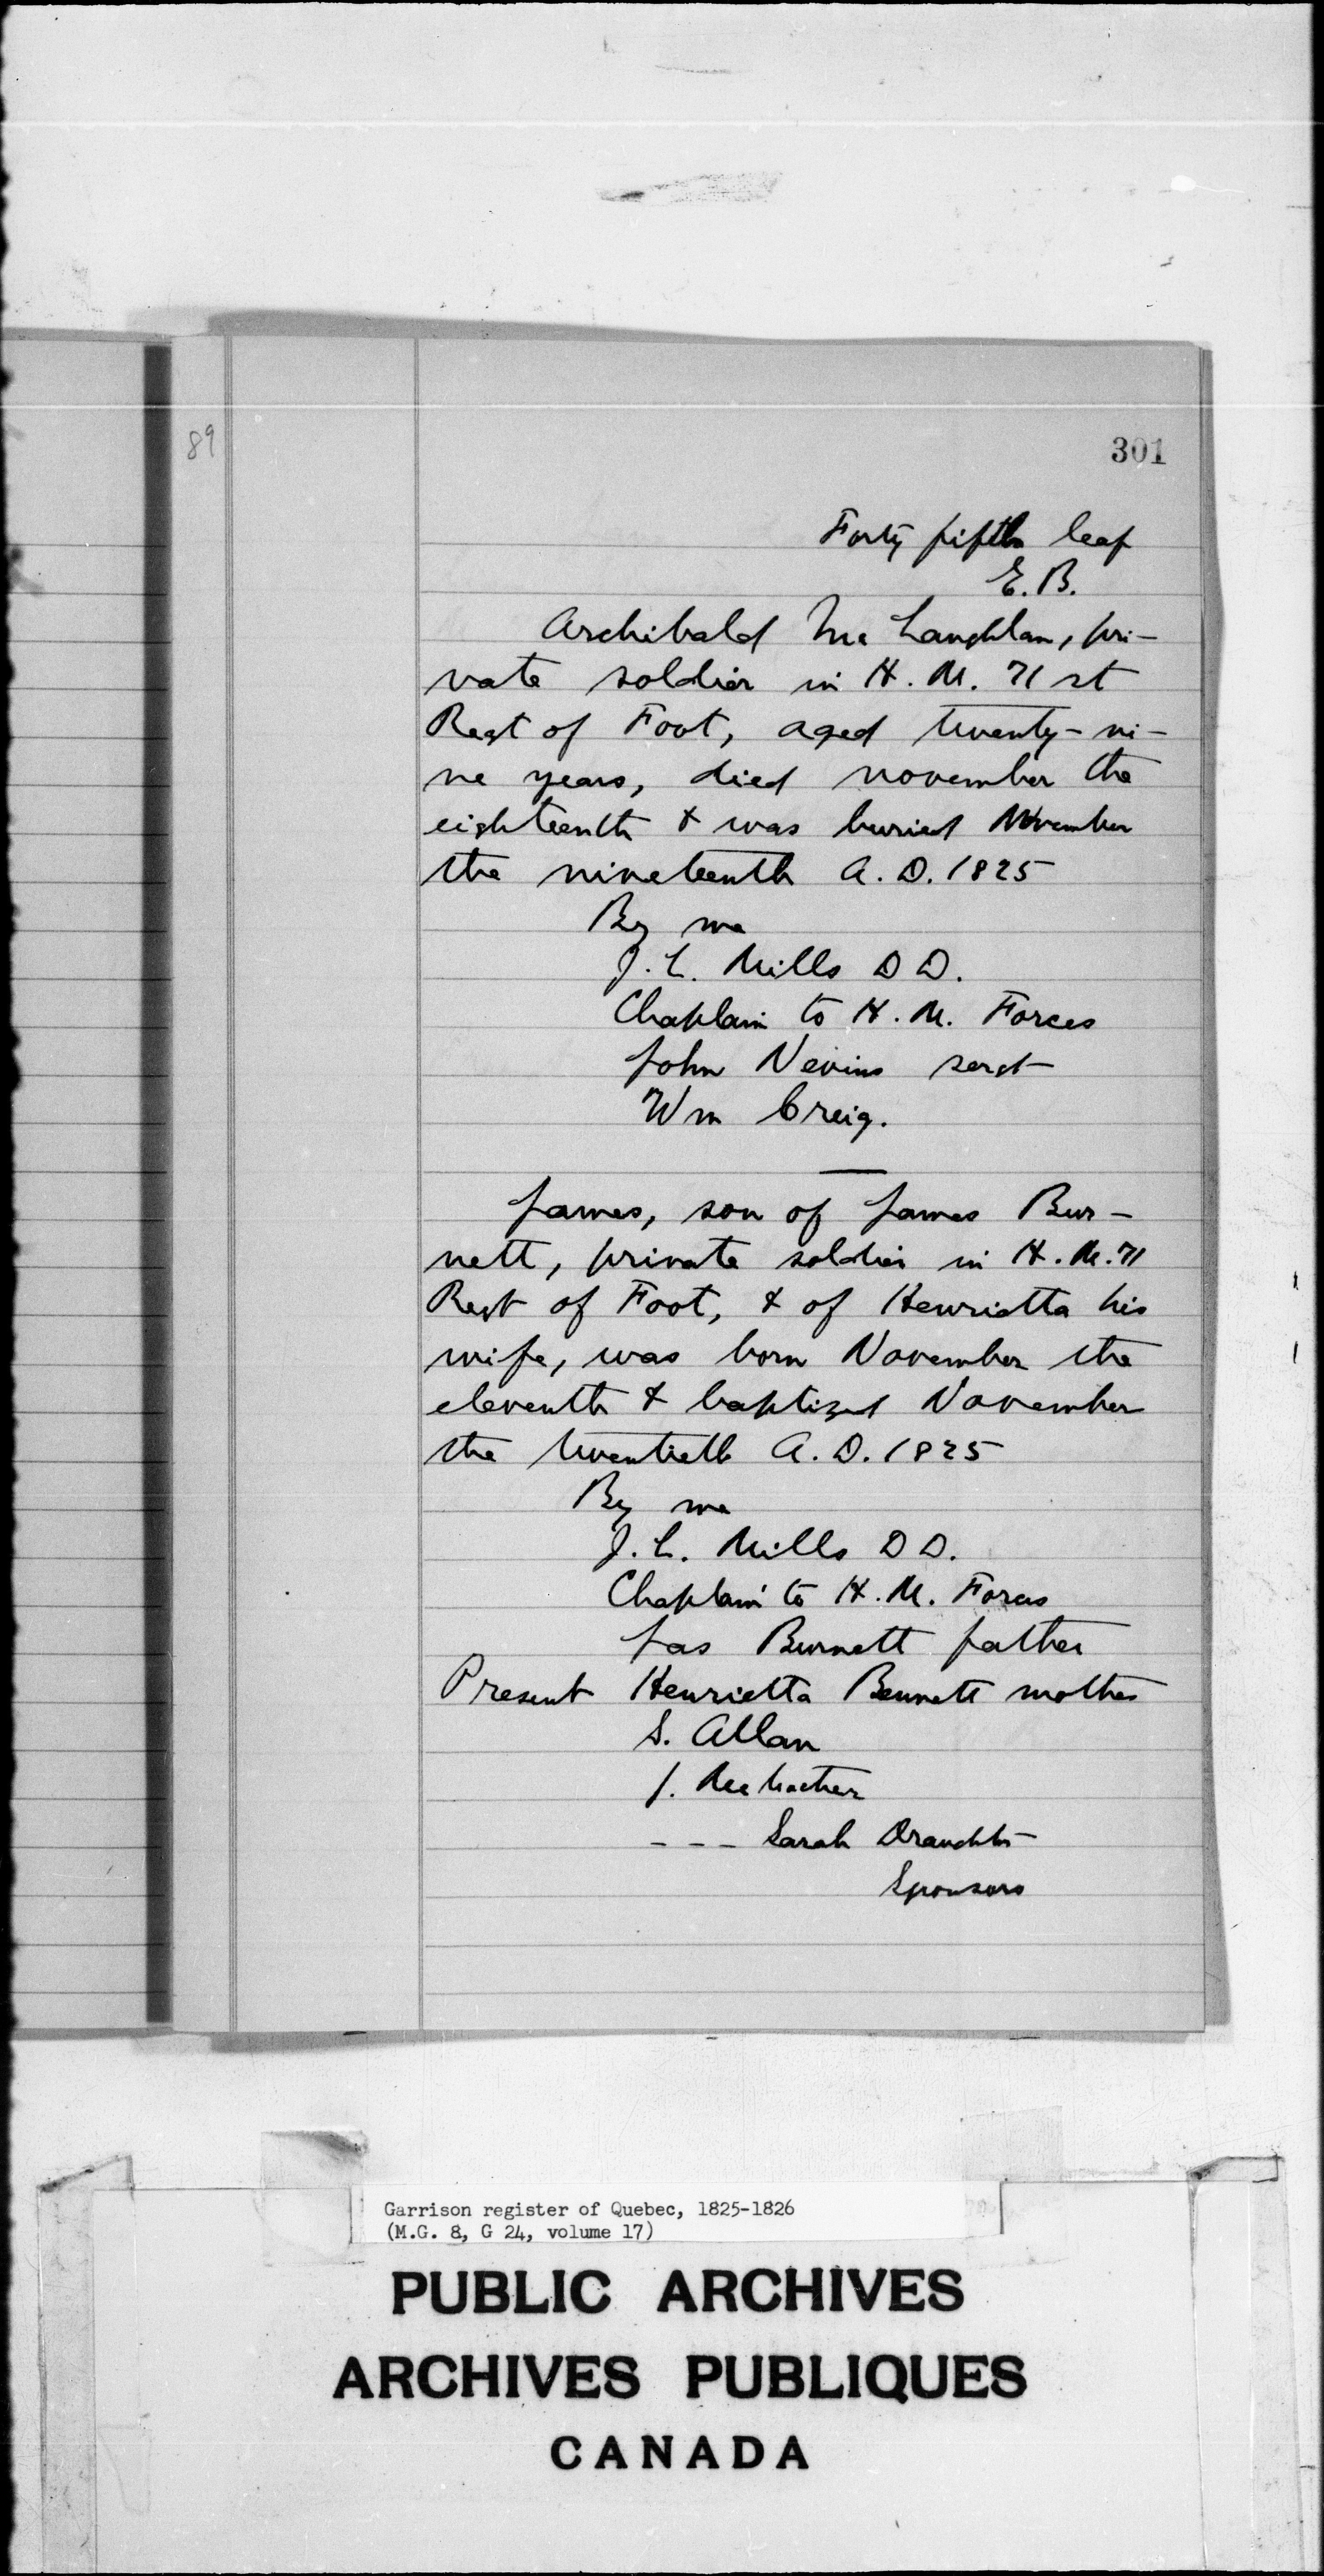 89
301
Forty fifth leaf
E. B.
Archibald Mc Laughlan, pri-
vate soldier in H. M. 71 st
Regt of Foot, aged twenty-ni-
ne years, died november the
eighteenth & was buried November
the nineteenth A. D. 1825
By me
J. L. Mills D D.
Chaplain to H. M. Forces
John Nevins serdt
Wm Creig.
James, son of James Bur-
nett, private soldier in H. M. 71
Regt of Foot, & of Henrietta his
wife, was born November the
eleventh & baptized November
the twentieth A. D. 1825
By me
J. L. Mills D D.
Chaplain to H. M. Forces
Jas Burnett father
Present Henrietta Bennett mother
S. Allan
J.
- - - Sarah
Sponsors
Garrison register of Quebec, 1825-1826
(M.G. 8, G 24, volume 17)
PUBLIC ARCHIVES
ARCHIVES PUBLIQUES
CANADA